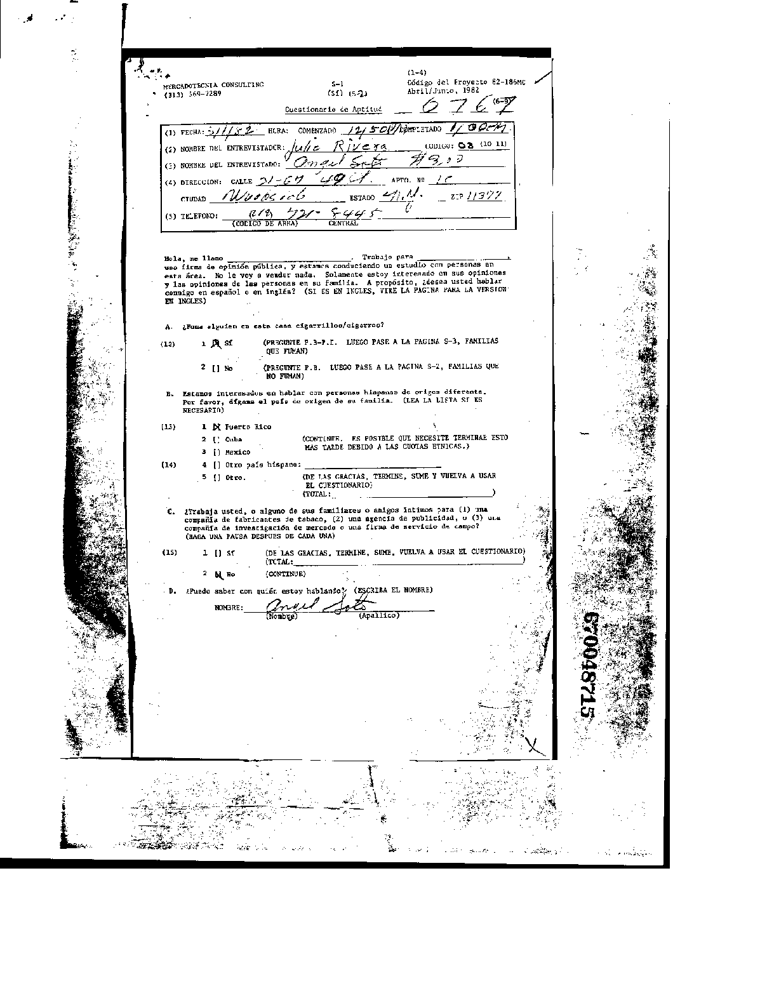 (1-4)
MERCADOTECNIA CONSULTING S-1 Código del Proyecto 82-186MC
(313) 569-7289 (Sf) (5-2) Abril/Junio, 1982
Cuestionario de Aptitud 0767 (6-9)
(1) FECHA: HORA: COMENZADO 12/50 COMPLETADO 1/00
(2) NOMBRE DEL ENTREVISTADOR: Julio Rivera CODIGO: 03 (10 11)
(3) NOMBRE DEL ENTREVISTADO: Angel Soto
(4) DIRECCION: CALLE APTO. NO 1C
CIUDAD ESTADO N.Y. ZIP 11377
(5) TELEFONO: 8445
(CODIGO DE AREA) CENTRAL
Hola, me llamo Trabajo para ,
una firma de opinión pública, y estamos conduciendo un estudio con personas en
esta área. No le voy a vender nada. Solamente estoy interesado en sus opiniones
y las opiniones de las personas en su familia. A propósito, ¿desea usted hablar
conmigo en español o en inglés? (SI ES EN INGLES, VIRE LA PAGINA PARA LA VERSION
EN INGLES)
A. ¿Fuma alguien en esta casa cigarrillos/cigarros?
(12) 1 [X] Sf (PREGUNTE P.B-P.E. LUEGO PASE A LA PAGINA S-3, FAMILIAS
QUE FUMAN)
2 [] No (PREGUNTE P.B. LUEGO PASE A LA PAGINA S-2, FAMILIAS QUE
NO FUMAN)
B. Estamos interesados en hablar con personas hispanas de origen diferente.
Por favor, dígame el país de origen de su familia. (LEA LA LISTA SI ES
NECESARIO)
(13) 1 [X] Puerto Rico
2 [] Cuba (CONTINUE. ES POSIBLE QUE NECESITE TERMINAR ESTO
3 [] Mexico MAS TARDE DEBIDO A LAS CUOTAS ETNICAS.)
(14) 4 [] Otro país hispano:
5 [] Otro. (DE LAS GRACIAS, TERMINE, SUME Y VUELVA A USAR
EL CUESTIONARIO)
(TOTAL: )
C. ¿Trabaja usted, o alguno de sus familiares o amigos íntimos para (1) una
compañía de fabricantes de tabaco, (2) una agencia de publicidad, o (3) una
compañía de investigación de mercado o una firma de servicio de campo?
(HAGA UNA PAUSA DESPUES DE CADA UNA)
(15) 1 [] Sf (DE LAS GRACIAS, TERMINE, SUME, VUELVA A USAR EL CUESTIONARIO)
(TOTAL: )
2 [X] No (CONTINUE)
D. ¿Puedo saber con quién estoy hablando? (ESCRIBA EL NOMBRE)
NOMBRE: Angel Soto
(Nombre) (Apellido)
670048715
X